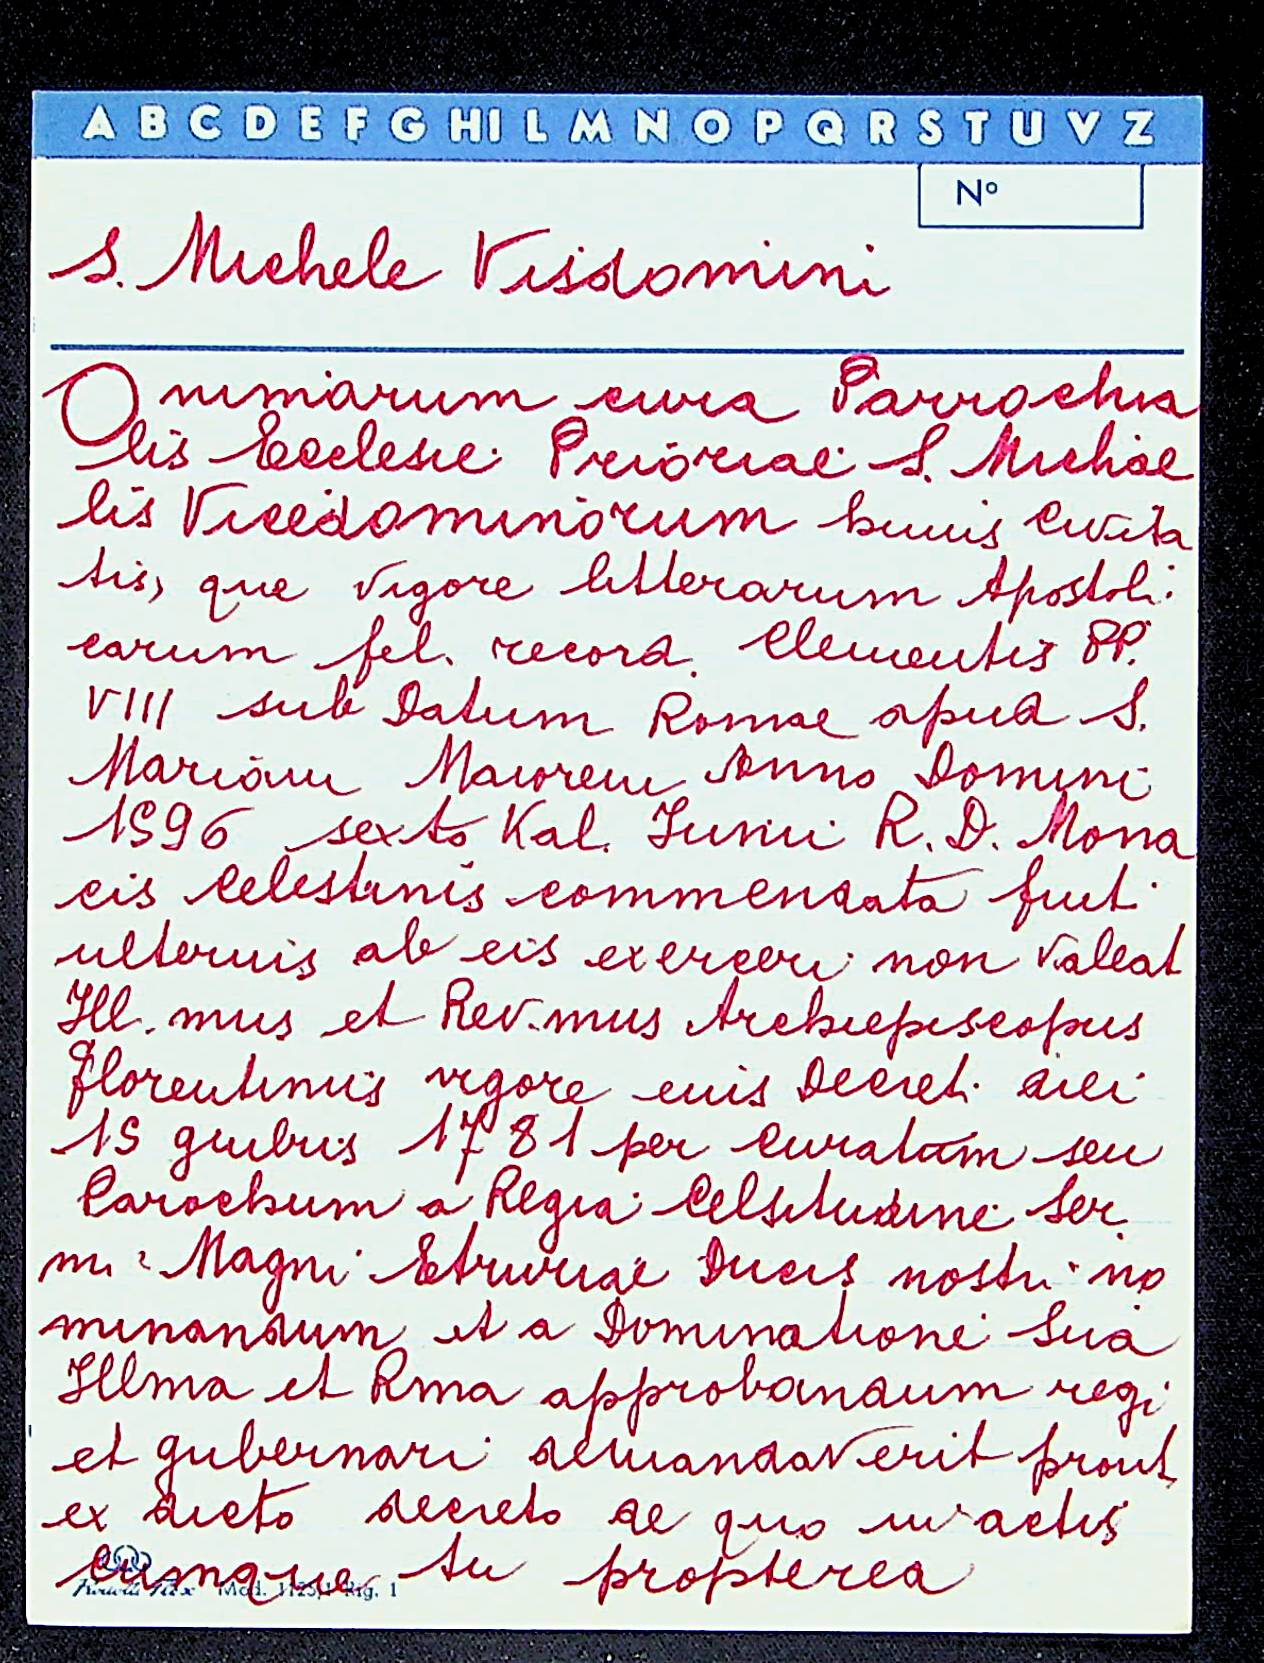 A B C D E F G H I L M N O P Q R S T U V Z
Nº
S. Michele Visdomini
Onimiarum cura Parrochia
lis Ecclesie Prioriae S. Michae
lis Vicedominorum huius Civita
tis, que vigore litterarum Apostoli
carum fel. record. Clementis PP.
VIII sub Datum Romae apud S.
Mariam Maiorem Anno Domini
1596 sexto Kal. Iunii R. D. Mona
cis Celestinis commendata fuit
ulterius ab eis exerceri non valeat
Ill.mus et Rev.mus Archiepiscopus
Florentinus vigore euis Decreti diei
15 9mbris 1781 per Curatum seu
Parochum a Regia Celsitudine Ser
mi Magni Etruriae Ducis nostri no
minandum et a Dominatione Sua
Illma et Rma approbandum regi
et gubernari demandaverit prout
ex dicto decreto de quo in actis
cumque tu propterea
Mod. 1125/1 Rig. 1